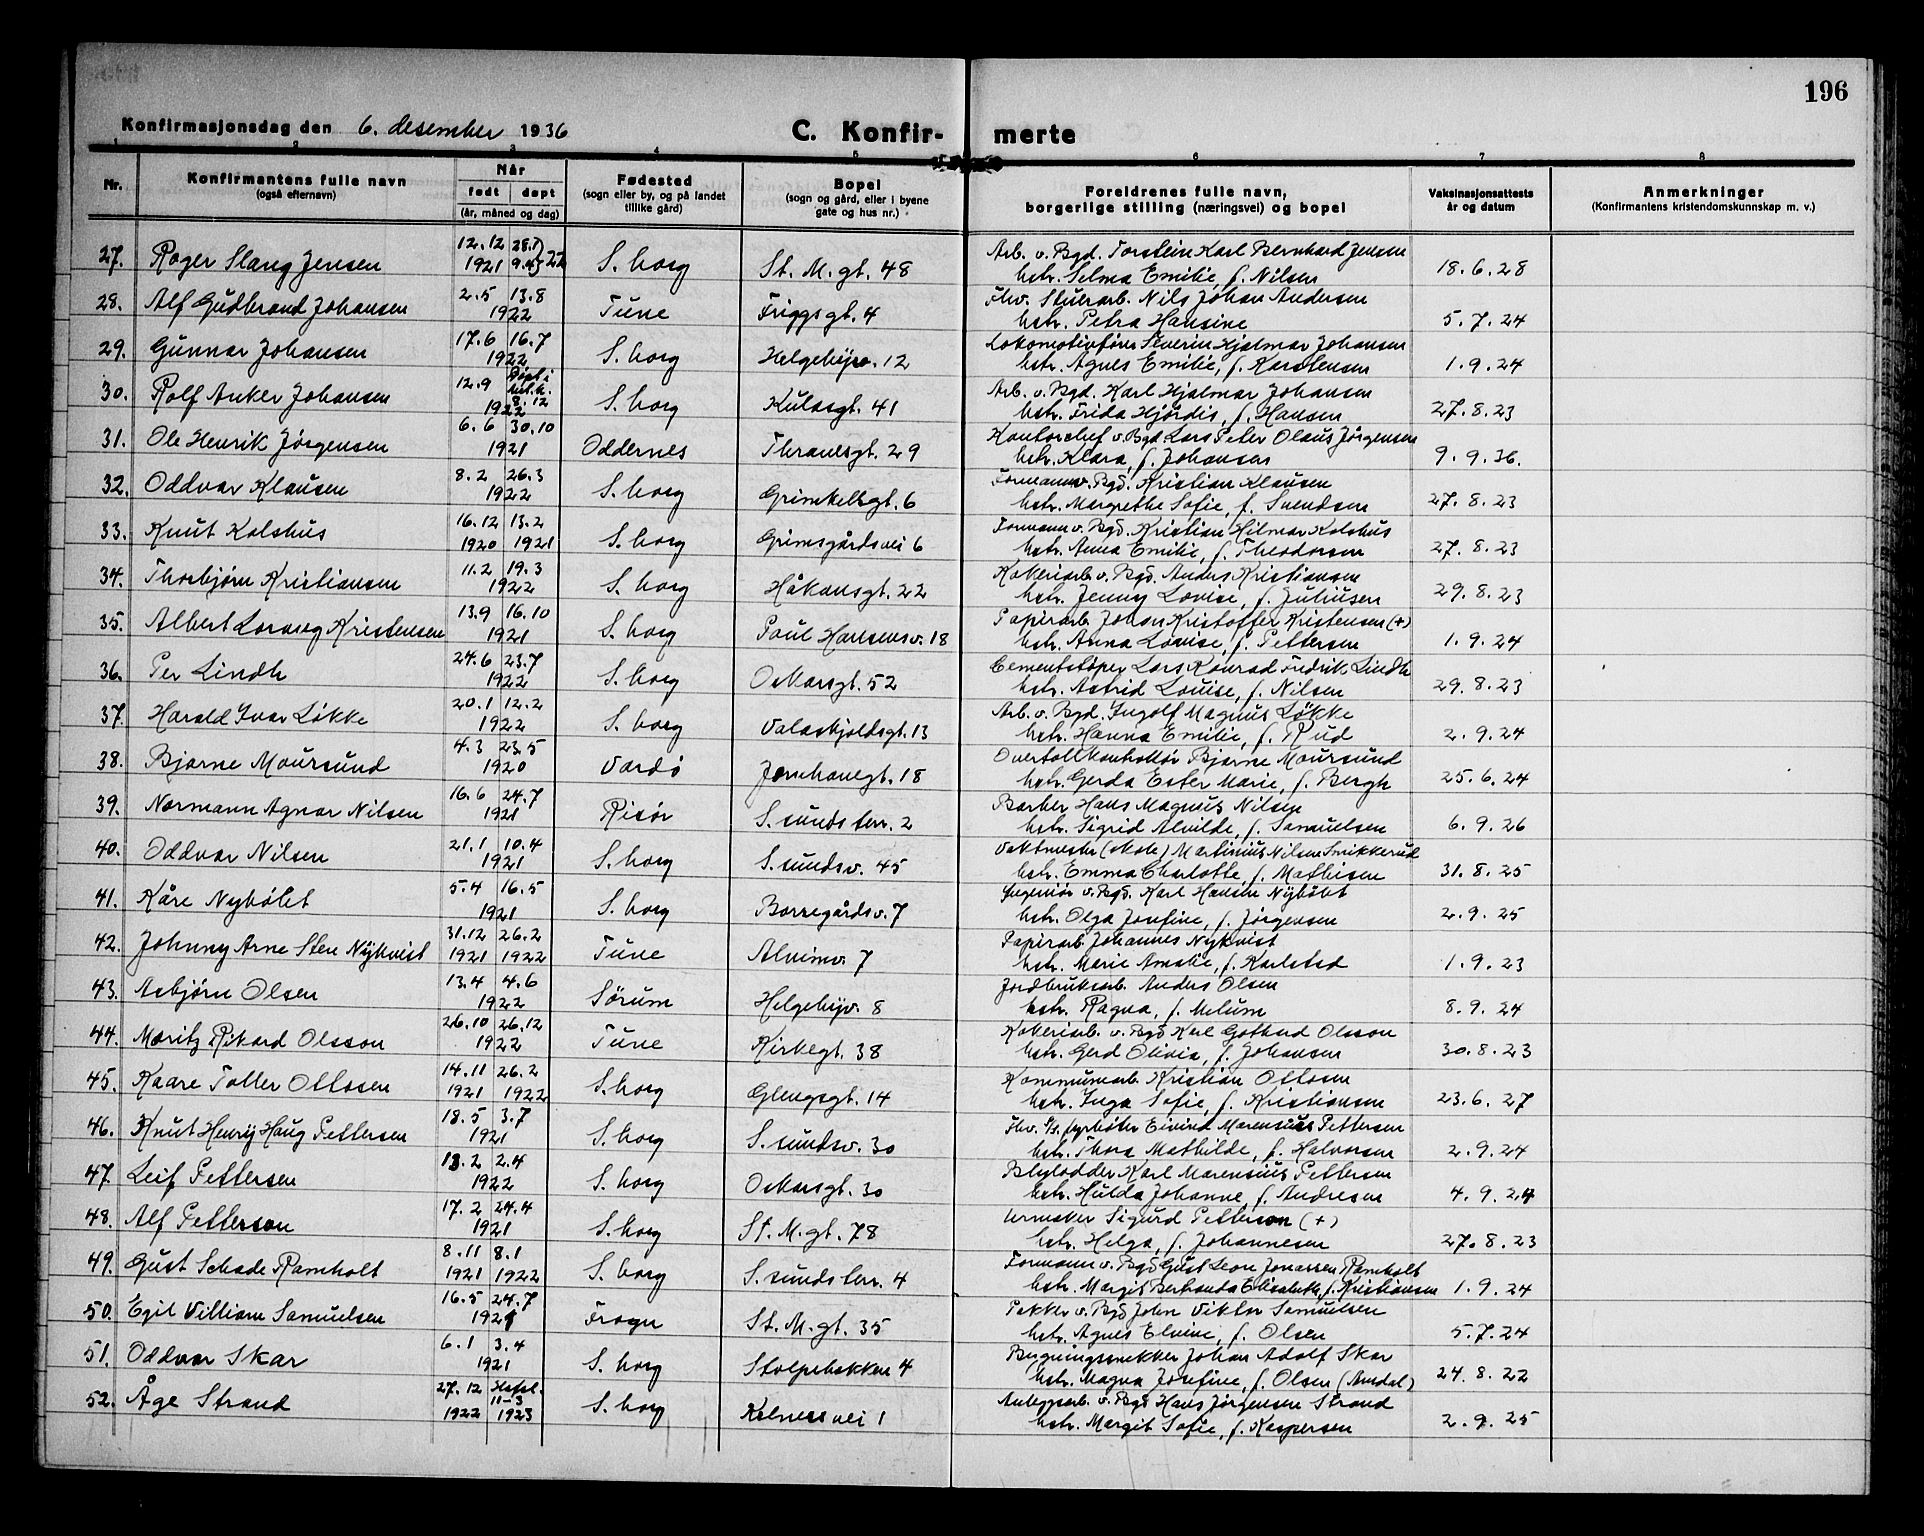 196
Konfirmasjonsdag den 6. desember 1936 C. Konfir- merte
1 2 3 4 5 6 7 8
Nr. Konfirmantens fulle navn (også efternavn) Når født døpt (år, måned og dag) Fødested (sogn eller by, og på landet tillike gård) Bopel (sogn og gård, eller i byene gate og hus nr.) Foreldrenes fulle navn, borgerlige stilling (næringsvei) og bopel Vaksinasjonsattests år og datum Anmerkninger (Konfirmantens kristendomskunnskap m. v.)
27. Roger Slang Jensen 12.12 1921 28.7 9.4 22 S.borg St. M. gt. 48 Arb. v. Bgd. Torstein Karl Bernhard Jensen
hstr. Selma Emilie, f. Nilsen 18.6.28
28. Alf Gudbrand Johansen 2.5 13.8 1922 Tune Friggsgt. 4 Fhv. Stuerarb. Nils Johan Andersen
hstr. Petra Hansine 5.7.24
29. Gunnar Johansen 17.6 16.7 1922 S.borg Helgebyv. 12 Lokomotivfører Severin Hjalmar Johansen
hstr. Agnes Emilie, f. Karstensen 1.9.24
30. Rolf Anker Johansen 12.9 Døpt i 8.12 1922 S.borg Kulasgt. 41 Arb. v. Bgd. Karl Hjalmar Johansen
hstr. Frida Hjørdis, f. Hansen 27.8.23
31. Ole Henrik Jørgensen 6.6 30.10 1921 Oddernes Thranesgt. 29 Kontorchef v. Bgd. Lars Peter Olaus Jørgensen
hstr. Klara, f. Johansen 9.9.36.
32. Oddvar Klausen 8.2 26.3 1922 S.borg Grimkelsgt. 6 Formann v. Bgd. Kristian Klausen
hstr. Margrethe Sofie, f. Svendsen 27.8.23
33. Knut Kolshus 16.12 1920 13.2 1921 S.borg Grimsgårdsvei 6 Formann v. Bgd. Kristian Hilmar Kolshus
hstr. Anna Emilie, f. Theodorsen 27.8.23
34. Thorbjørn Kristiansen 11.2 19.3 1922 S.borg Håkonsgt. 22 Kokeriarb. v. Bgd. Anders Kristiansen
hstr. Jenny Lovise, f. Juliusen 29.8.23
35. Albert Lorang Kristensen 13.9 16.10 1921 S.borg Poul Hansensv. 18 Papirarb. Johan Kristoffer Kristensen (+)
hstr. Anna Lovise, f. Pettersen 1.9.24
36. Per Lindh 24.6 23.7 1922 S.borg Oskarsgt. 52 Cementstøper Lars Konrad Fredrik Lindh
hstr. Astrid Louise, f. Nilsen 29.8.23
37. Harald Ivar Løkke 20.1 12.2 1922 S.borg Valaskjoldsgt. 13 Arb. v. Bgd. Ingolf Magnus Løkke
hstr. Hanna Emilie, f. Rud 2.9.24
38. Bjarne Moursund 4.3 23.5 1920 Vardø Jernhanegt. 18 Overtollkontrollør Bjarne Moursund
hstr. Gerda Ester Marie, f. Bergh 25.6.24
39. Normann Agnar Nilsen 16.6 24.7 1921 Risør S.sunds terr. 2 Barber Hans Magnus Nilsen
hstr. Sigrid Alvilde, f. Samuelsen 6.9.26
40. Oddvar Nilsen 21.1 10.4 1921 S.borg S.sundsv. 45 Vaktmester (skole) Martinius Nilsen Snikkerud
hstr. Emma Charlotte, f. Mathisen 31.8.25
41. Kåre Nybölet 5.4 16.5 1921 S.borg Borregårdsv. 7 Ingeniør v. Bgd. Karl Hansen Nybölet
hstr. Olga Josefine, f. Jørgensen 2.9.25
42. Johnny Arne Sten Nykvist 31.12 1921 26.2 1922 Tune Alvimv. 7 Papirarb. Johannes Nykvist
hstr. Marie Amalie, f. Karlstad 1.9.23
43. Asbjørn Olsen 13.4 4.6 1922 Sørum Helgebyv. 8 Jordbruksarb. Anders Olsen
hstr. Ragna, f. Melum 8.9.24
44. Moritz Rikard Olsson 26.10 26.12 1922 Tune Kirkegt. 38 Kokeriarb. v. Bgd. Karl Gothard Olsson
hstr. Gerd Olivia, f. Johansen 30.8.23
45. Kaare Toller Ottosen 14.11 1921 26.2 1922 S.borg Glengsgt. 14 Kommunearb. Kristian Ottosen
hstr. Inga Sofie, f. Kristiansen 23.6.27
46. Knut Henry Haug Pettersen 18.5 3.7 1921 S.borg S.sundsv. 30 Fhv. fyrbøter Eivind Marensius Pettersen
hstr. Thora Mathilde, f. Halvorsen 2.9.24
47. Leif Pettersen 13.2 2.4 1922 S.borg Oskarsgt. 30 Blylodder Karl Marensius Pettersen
hstr. Hulda Johanne, f. Andresen 4.9.24
48. Alf Petterson 17.2 24.4 1921 S.borg St. M. gt. 78 Urmaker Sigurd Petterson (+)
hstr. Helga, f. Johannesen 27.8.23
49. Gust Schade Ramholt 8.11 1921 8.1 1922 S.borg S.sunds terr. 4 Formann v. Bgd Gust Leon Jonassen Ramholt
hstr. Margit Elisabeth, f. Kristiansen 1.9.24
50. Egil Villiam Samuelsen 16.5 24.7 1921 Frogn St. M. gt. 35 Pakker v. Bgd John Viktor Samuelsen
hstr. Agnes Elvine, f. Olsen 5.7.24
51. Oddvar Skar 6.1 3.4 1921 S.borg Stolpebakken 4 Bygningssnekker Johan Adolf Skar
hstr. Magna Josefine, f. Olsen (Amdal) 24.8.22
52. Åge Strand 27.12 1922 11-3 1923 S.borg Kolnessvei 1 Anleggsarb. v. Bgd Hans Jørgensen Strand
hstr. Margit Sofie, f. Kaspersen 2.9.25